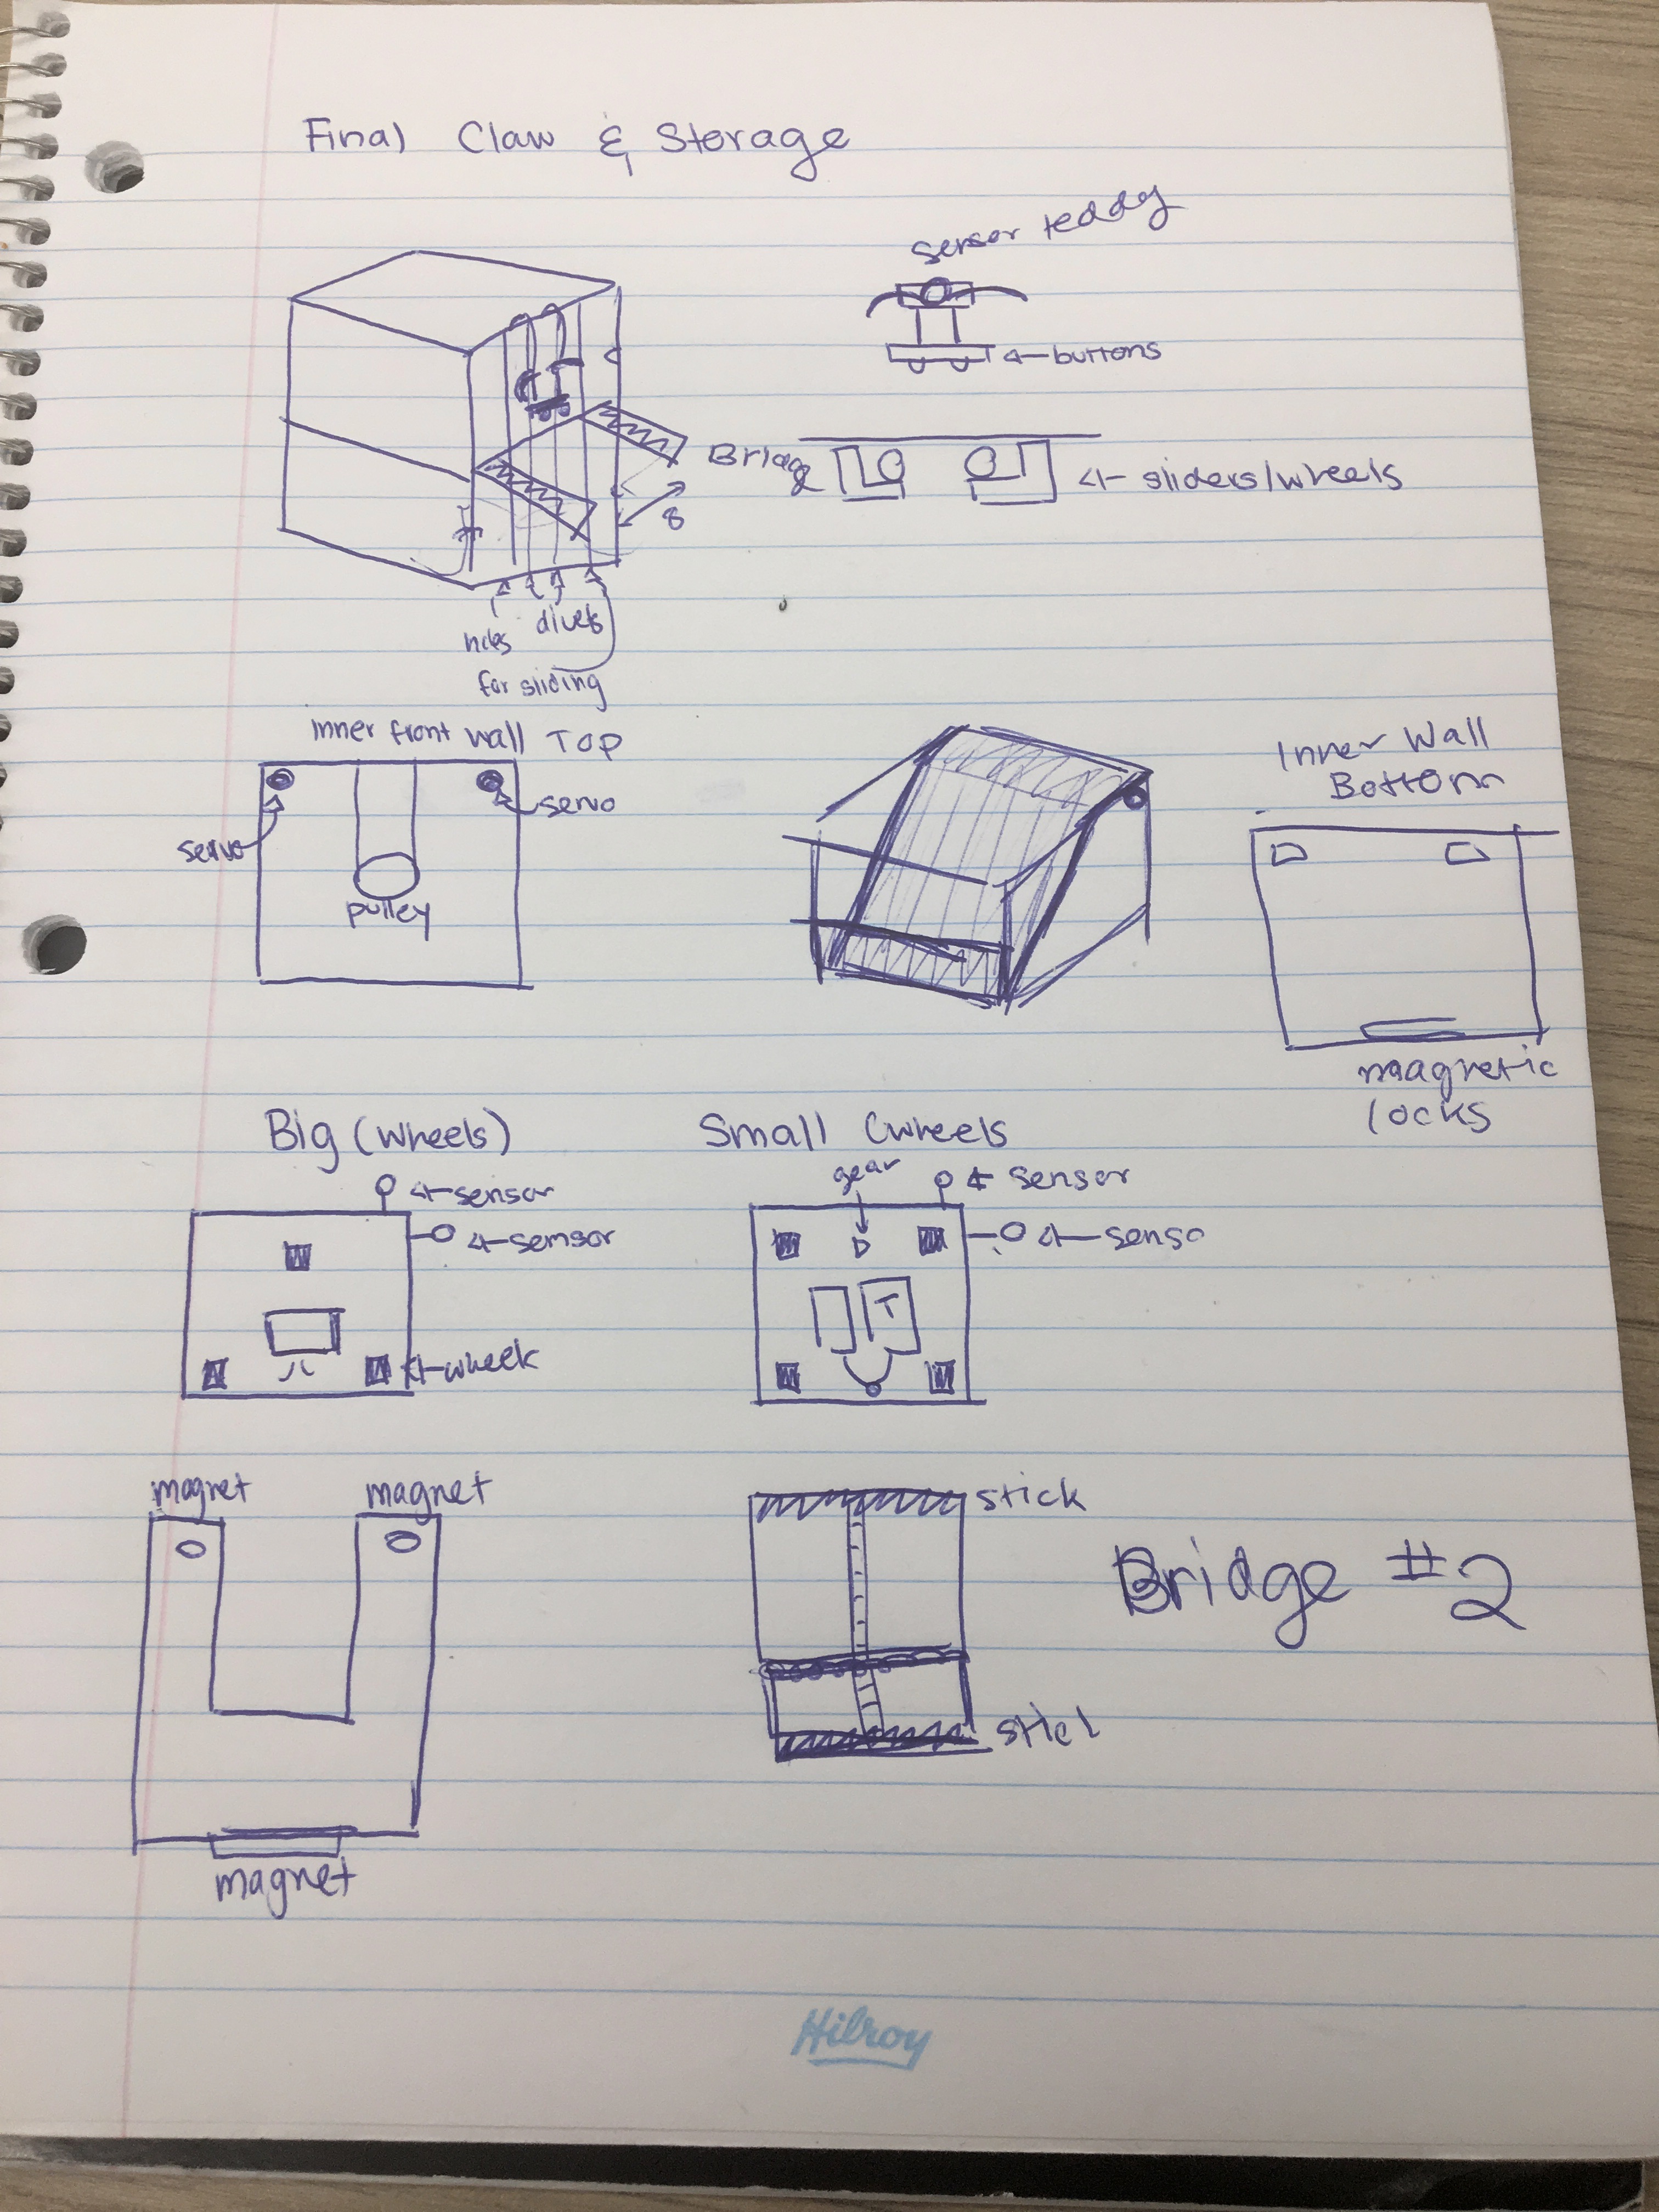 Final Claw & Storage
sensor teddy
buttons
Bridg
sliders/wheels
8
holes
divets
for sliding
Inner front wall TOP
servo
servo
pulley
Inner Wall
Bottom
magnetic
locks
Big (wheels)
Small (wheels
sensor
sensor
gear
sensor
senso
wheel
T
magnet
magnet
stick
Bridge #2
magnet
Hilroy